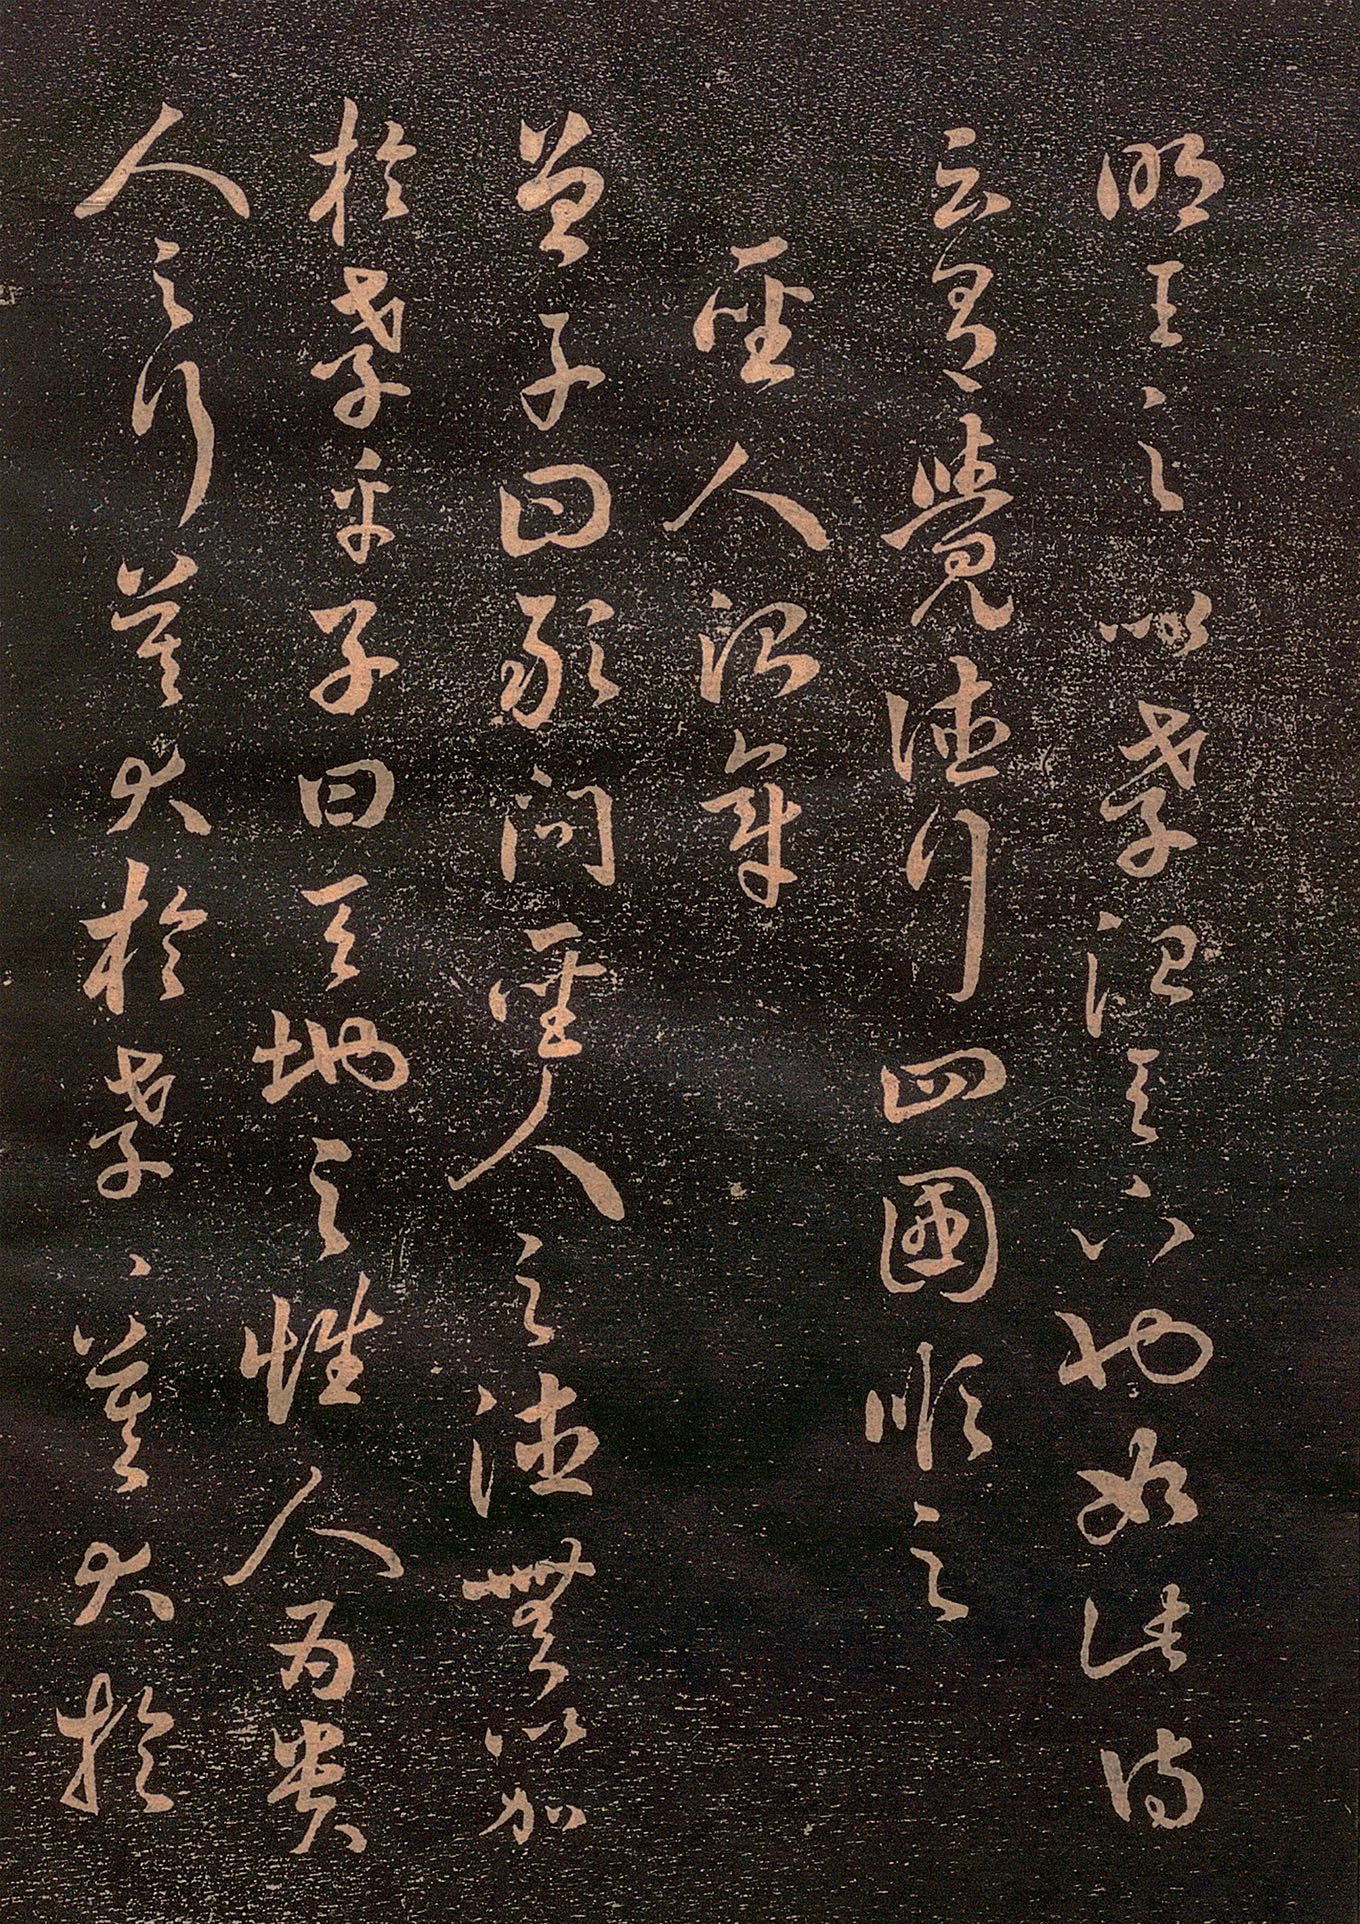 明王之以孝治天下也如此詩
云有覺德行四國順之
聖人治章
曾子曰敢問聖人之德無以加
於孝乎子曰天地之性人為貴
人之行莫大於孝々莫大於